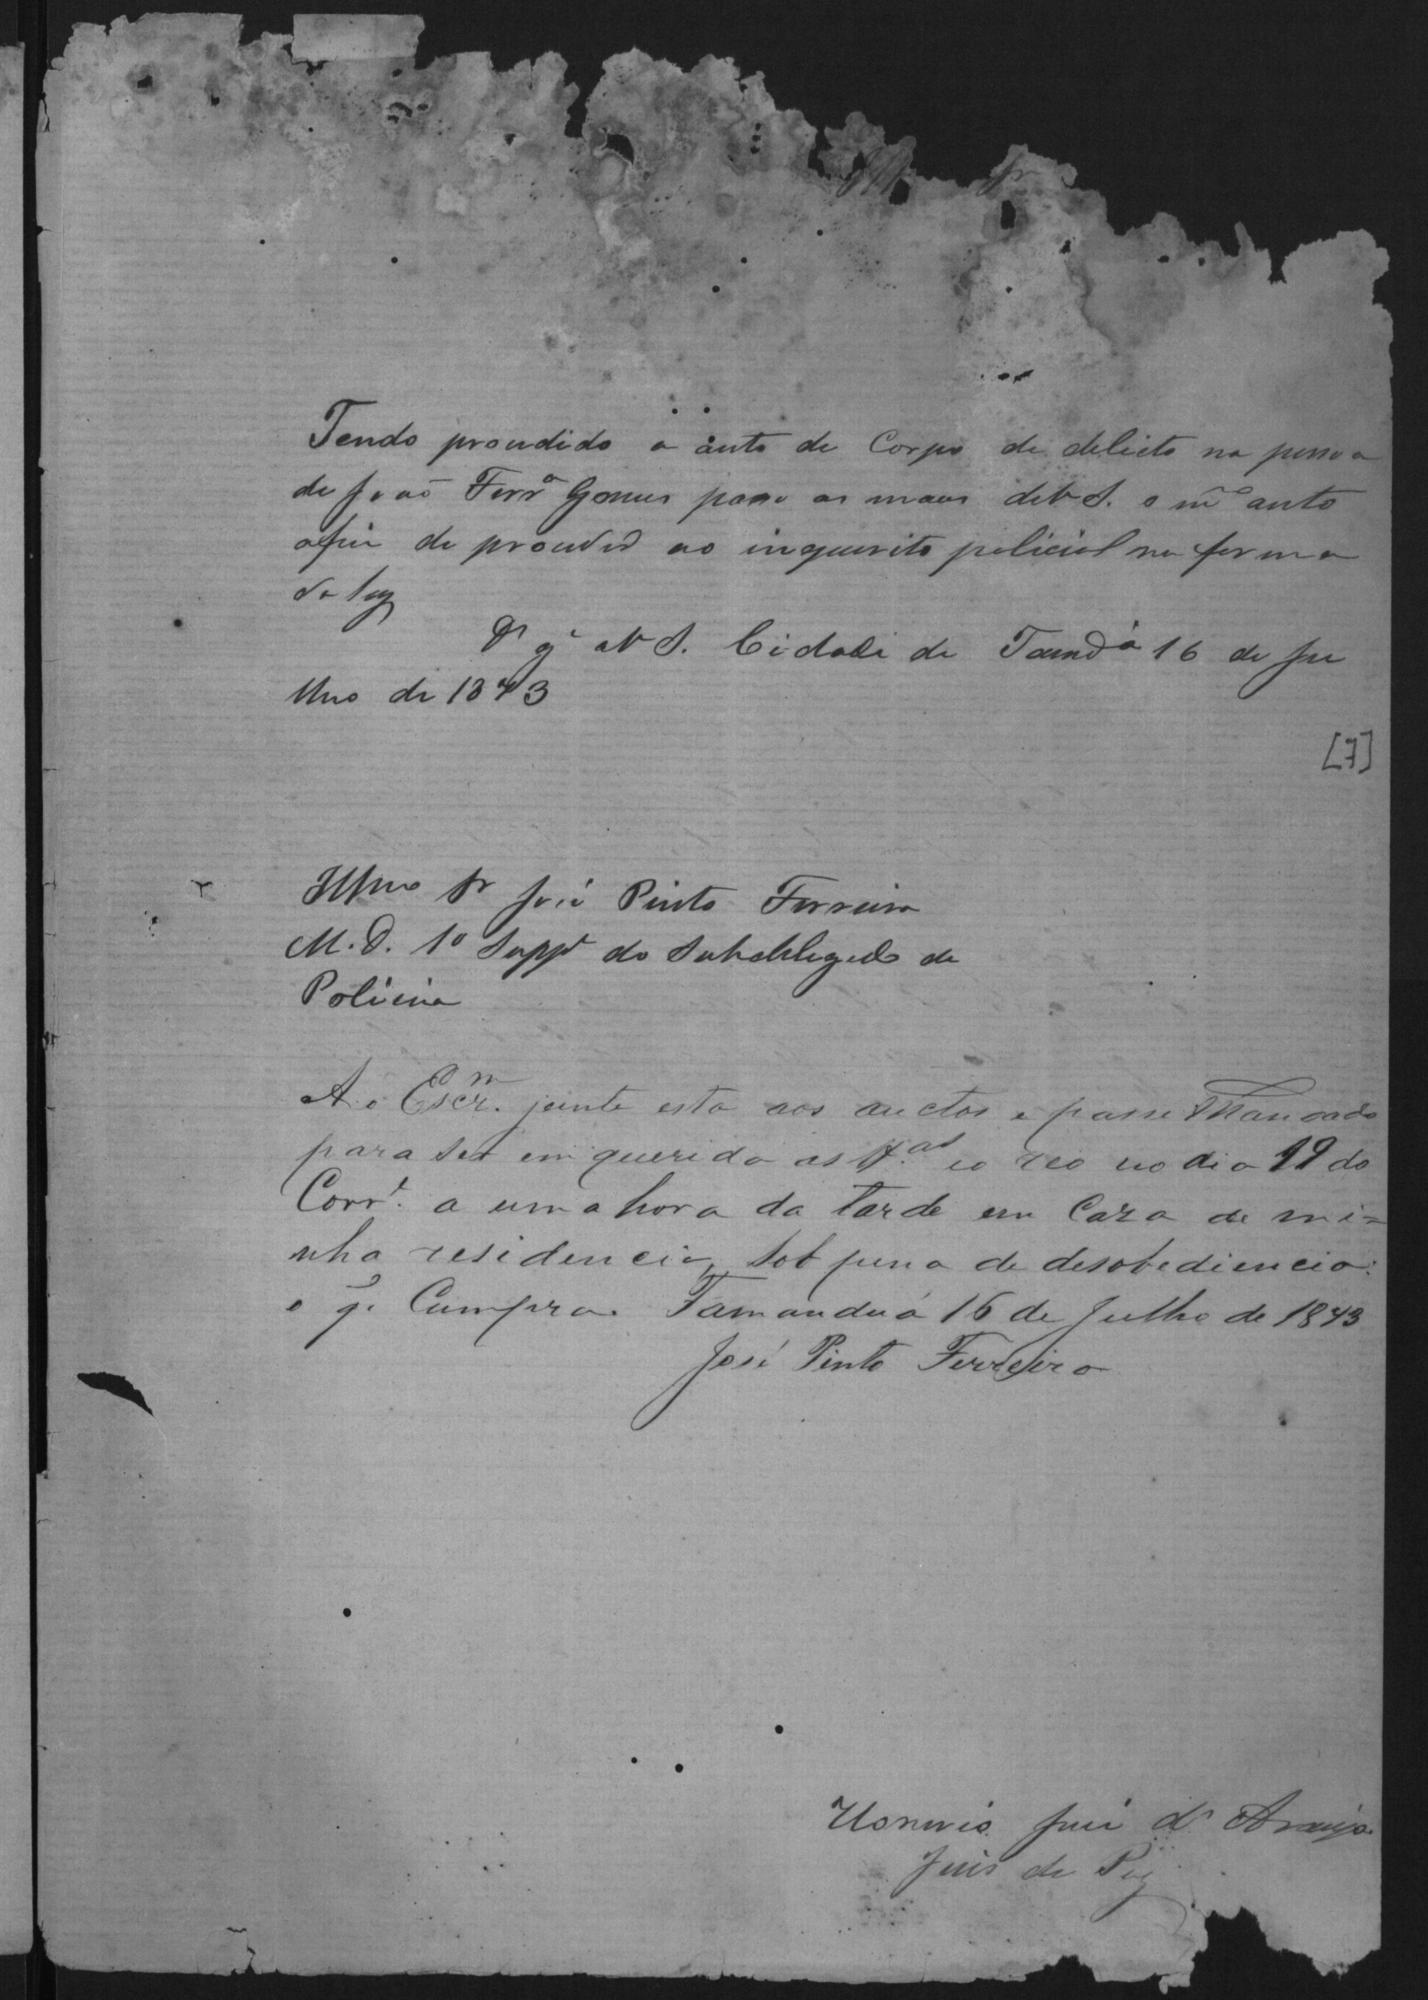 Tendo procedido a auto de Corpo de delicto na pessoa
de João Ferrª Gomes passo as maos de V S. o mmº auto
afim de proceder ao inquerito policial na forma
da ley
Ds ge a V S. Cidade de Tamdá 16 de Ju
lho de 1873
[7]
Illmo Sr José Pinto Ferreira
M. D. 1º Suppe do Subdelegado de
Policia
Ao Escrm. junte esta aos auctos e passe Mandado
para ser emquerida as tt.as eo reo no dia 19 do
Corre. a uma hora da tarde em Caza de mi=
nha residencia, sob pena de desobediencia:
o q. Cumpra. Tamanduá 16 de Julho de 1873
José Pinto Ferreira
José de Araujo
Juis de Paz